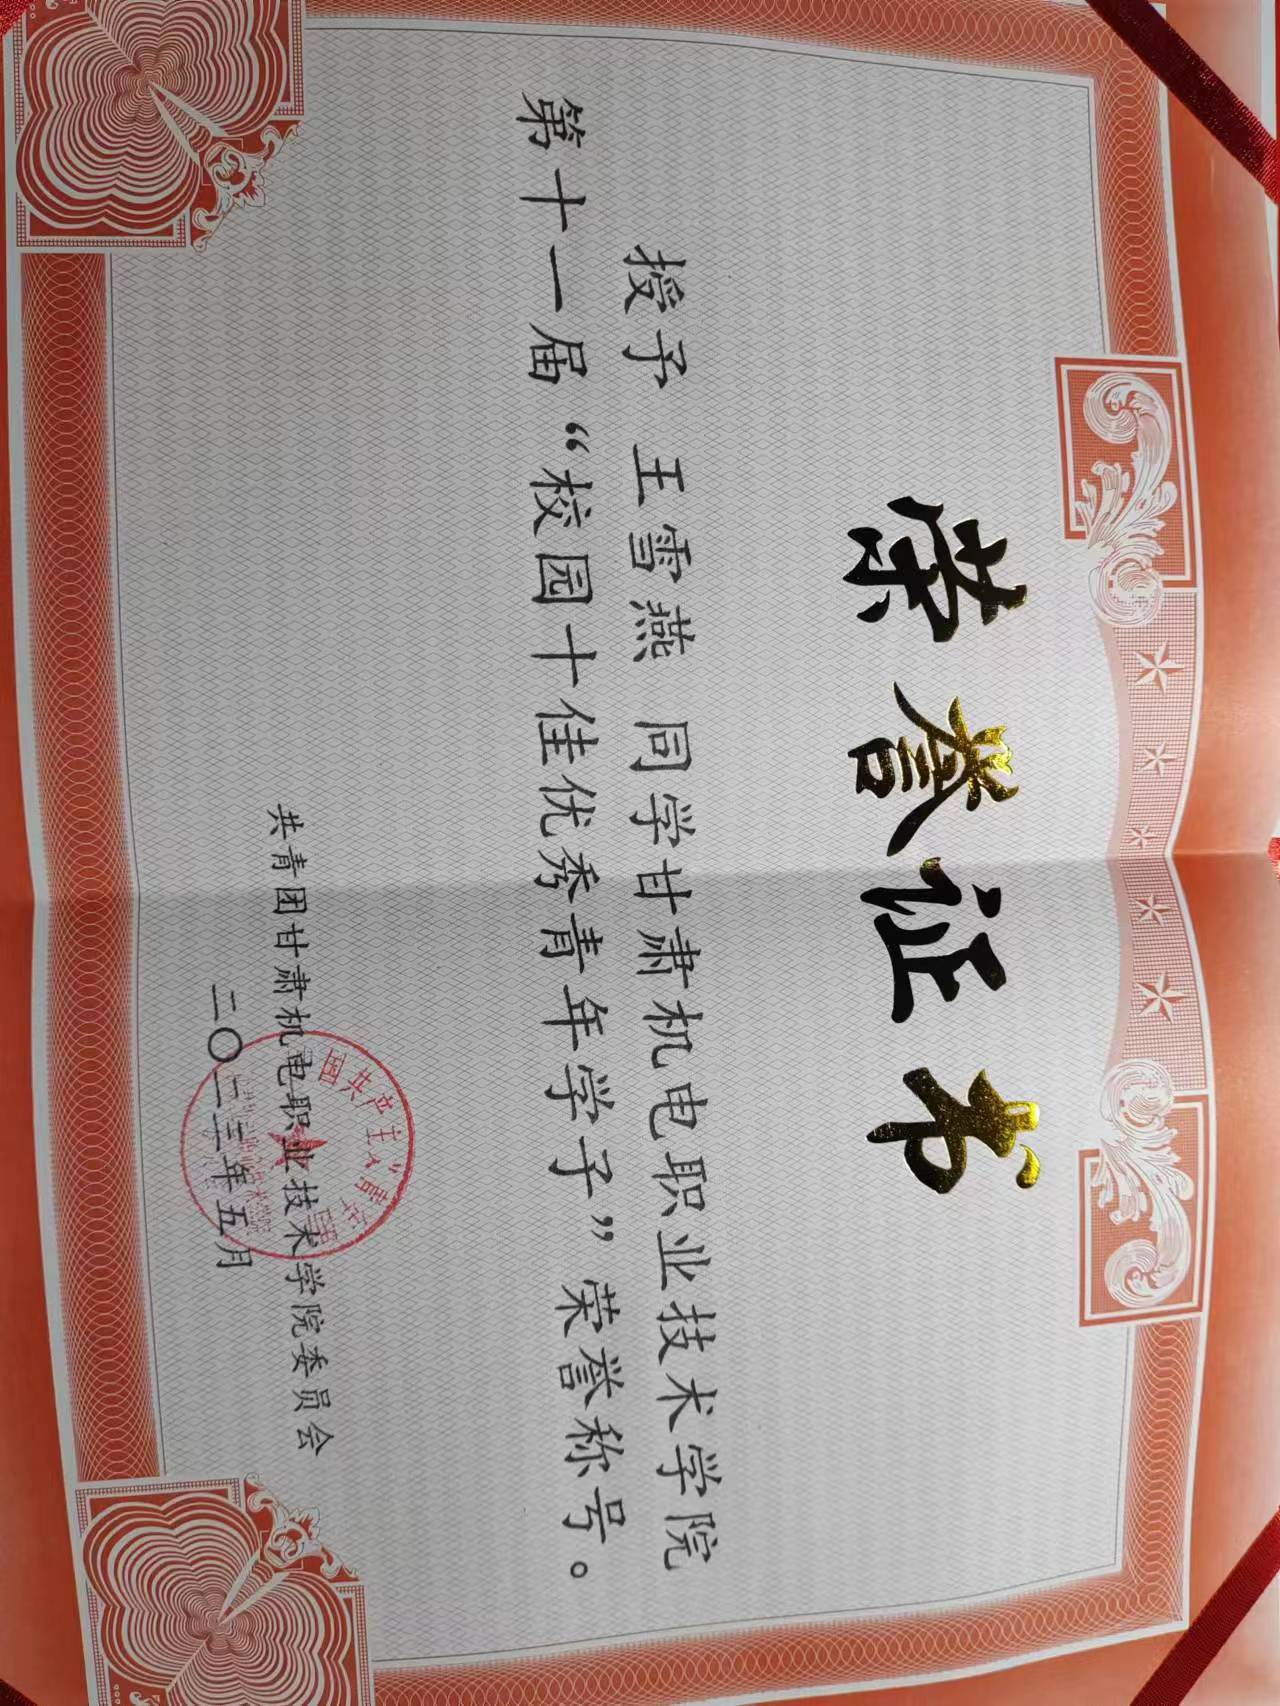 荣誉证书
授予 王雪燕 同学甘肃机电职业技术学院
第十一届“校园十佳优秀青年学子”荣誉称号。
共青团甘肃机电职业技术学院委员会
二〇二三年五月